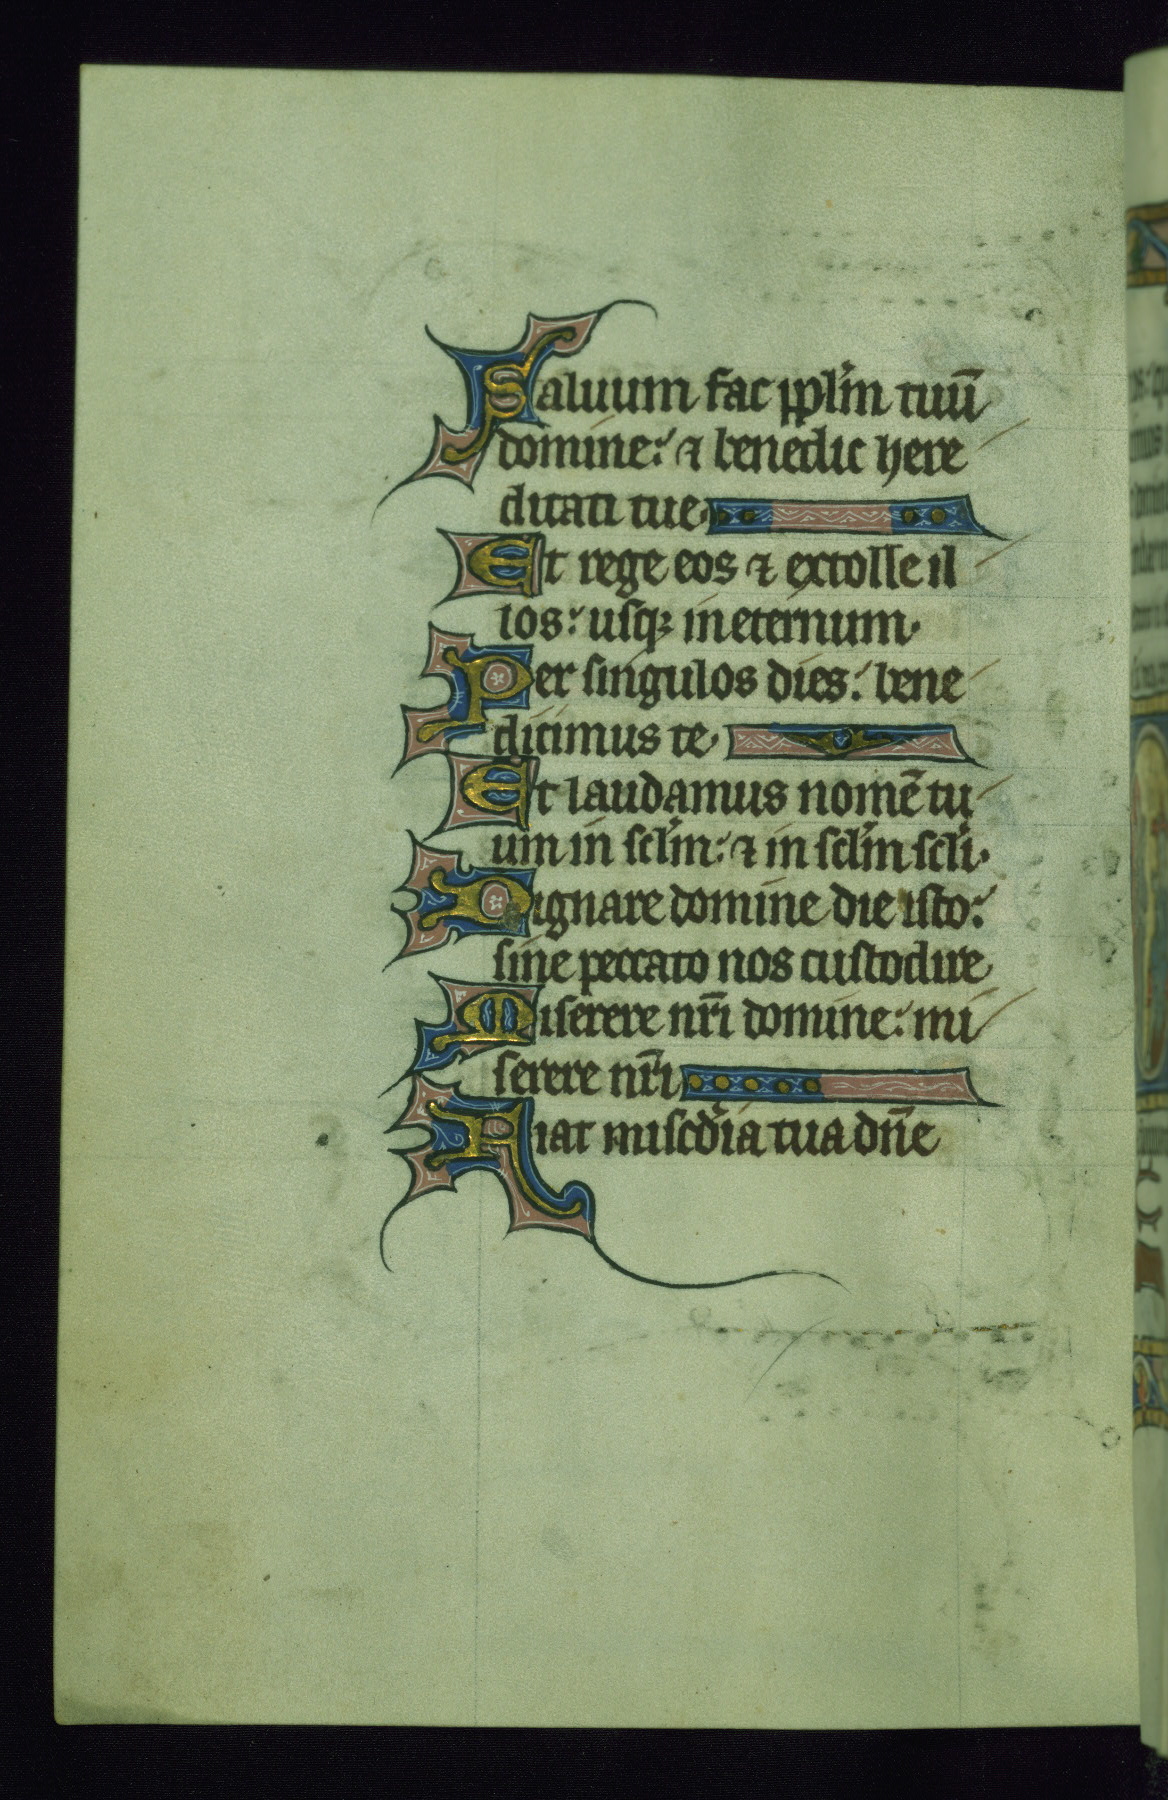 Saluum fac pplm̄ tuū
domine: ⁊ benedic here
ditati tue.
Et rege eos ⁊ extolle il
los: usq; in eternum.
Per singulos dies: bene
dicimus te.
Et laudamus nomē tu
um in sclm̄: ⁊ in sclm̄ scli.
Dignare domine die isto:
sine peccato nos custodire
Miserere nr̄i domine: mi
serere nr̄i
Fiat miscdia tua dn̄e